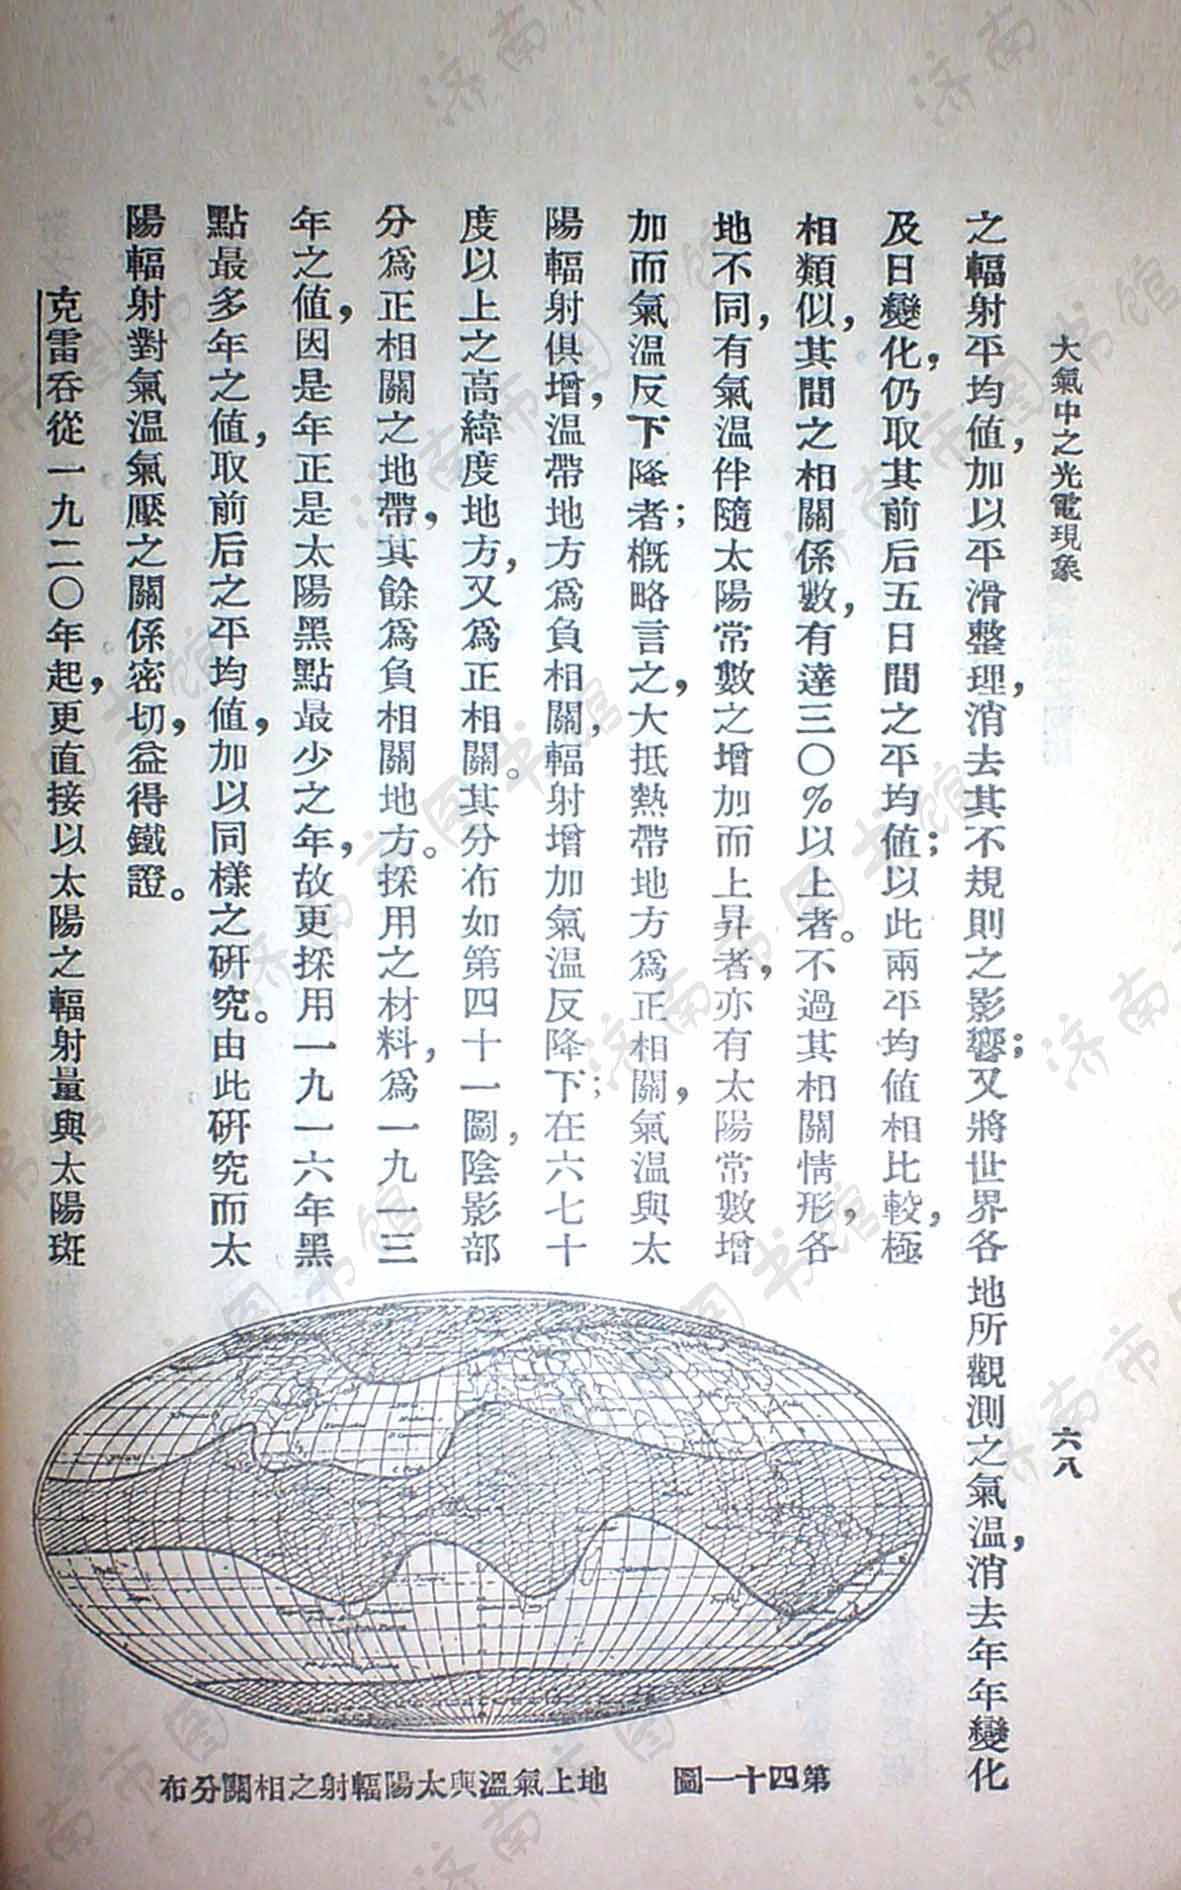 大氣中之光電現象
六八
之輻射平均値，加以平滑整理，消去其不規則之影響；又將世界各地所觀測之氣溫，消去年年變化
及日變化，仍取其前后五日間之平均値；以此兩平均値相比較，極
相類似，其間之相關係數，有達三〇％以上者。不過其相關情形，各
地不同，有氣溫伴隨太陽常數之增加而上昇者，亦有太陽常數增
加而氣溫反下降者；槪略言之，大抵熱帶地方爲正相關，氣溫與太
陽輻射俱增，溫帶地方爲負相關，輻射增加氣溫反降下；在六七十
度以上之高緯度地方，又爲正相關。其分布如第四十一圖，陰影部
分爲正相關之地帶，其餘爲負相關地方。採用之材料，爲一九一三
年之値，因是年正是太陽黑點最少之年，故更採用一九一六年黑
點最多年之値，取前后之平均値，加以同樣之硏究。由此硏究而太
陽輻射對氣溫氣壓之關係密切，益得鐵證。
克雷呑從一九二〇年起，更直接以太陽之輻射量與太陽斑
第四十一圖　地上氣溫與太陽輻射之相關分布
济南市图书馆